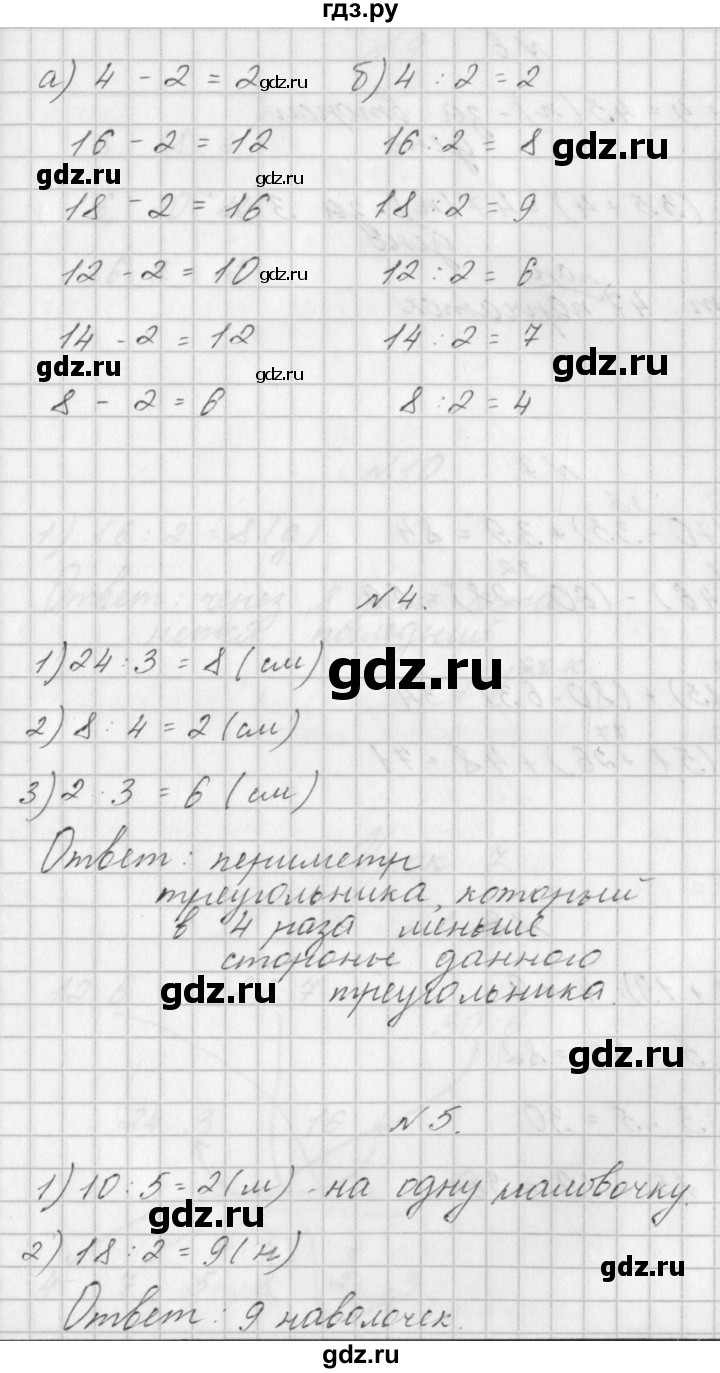 гдз.ру
а) 4 - 2 = 2 б) 4 : 2 = 2
gdz.ru
16 - 2 = 12 16 : 2 = 8
gdz.ru
gdz.ru gdz.ru
18 - 2 = 16 18 : 2 = 9
12 - 2 = 10 12 : 2 = 6
gdz.ru
14 - 2 = 12 14 : 2 = 7
gdz.ru gdz.ru gdz.ru
8 - 2 = 6 8 : 2 = 4
№ 4.
1) 24 : 3 = 8 (см)
gdz.ru
2) 8 : 4 = 2 (см)
3) 2 · 3 = 6 (см)
Ответ: периметр
треугольника, который
в 4 раза меньше
стороны данного
gdz.ru треугольника.
gdz.ru
№ 5.
1) 10 : 5 = 2 (м) - на одну
gdz.ru
2) 18 : 2 = 9 (н)
gdz.ru
Ответ: 9 наволочек.
gdz.ru